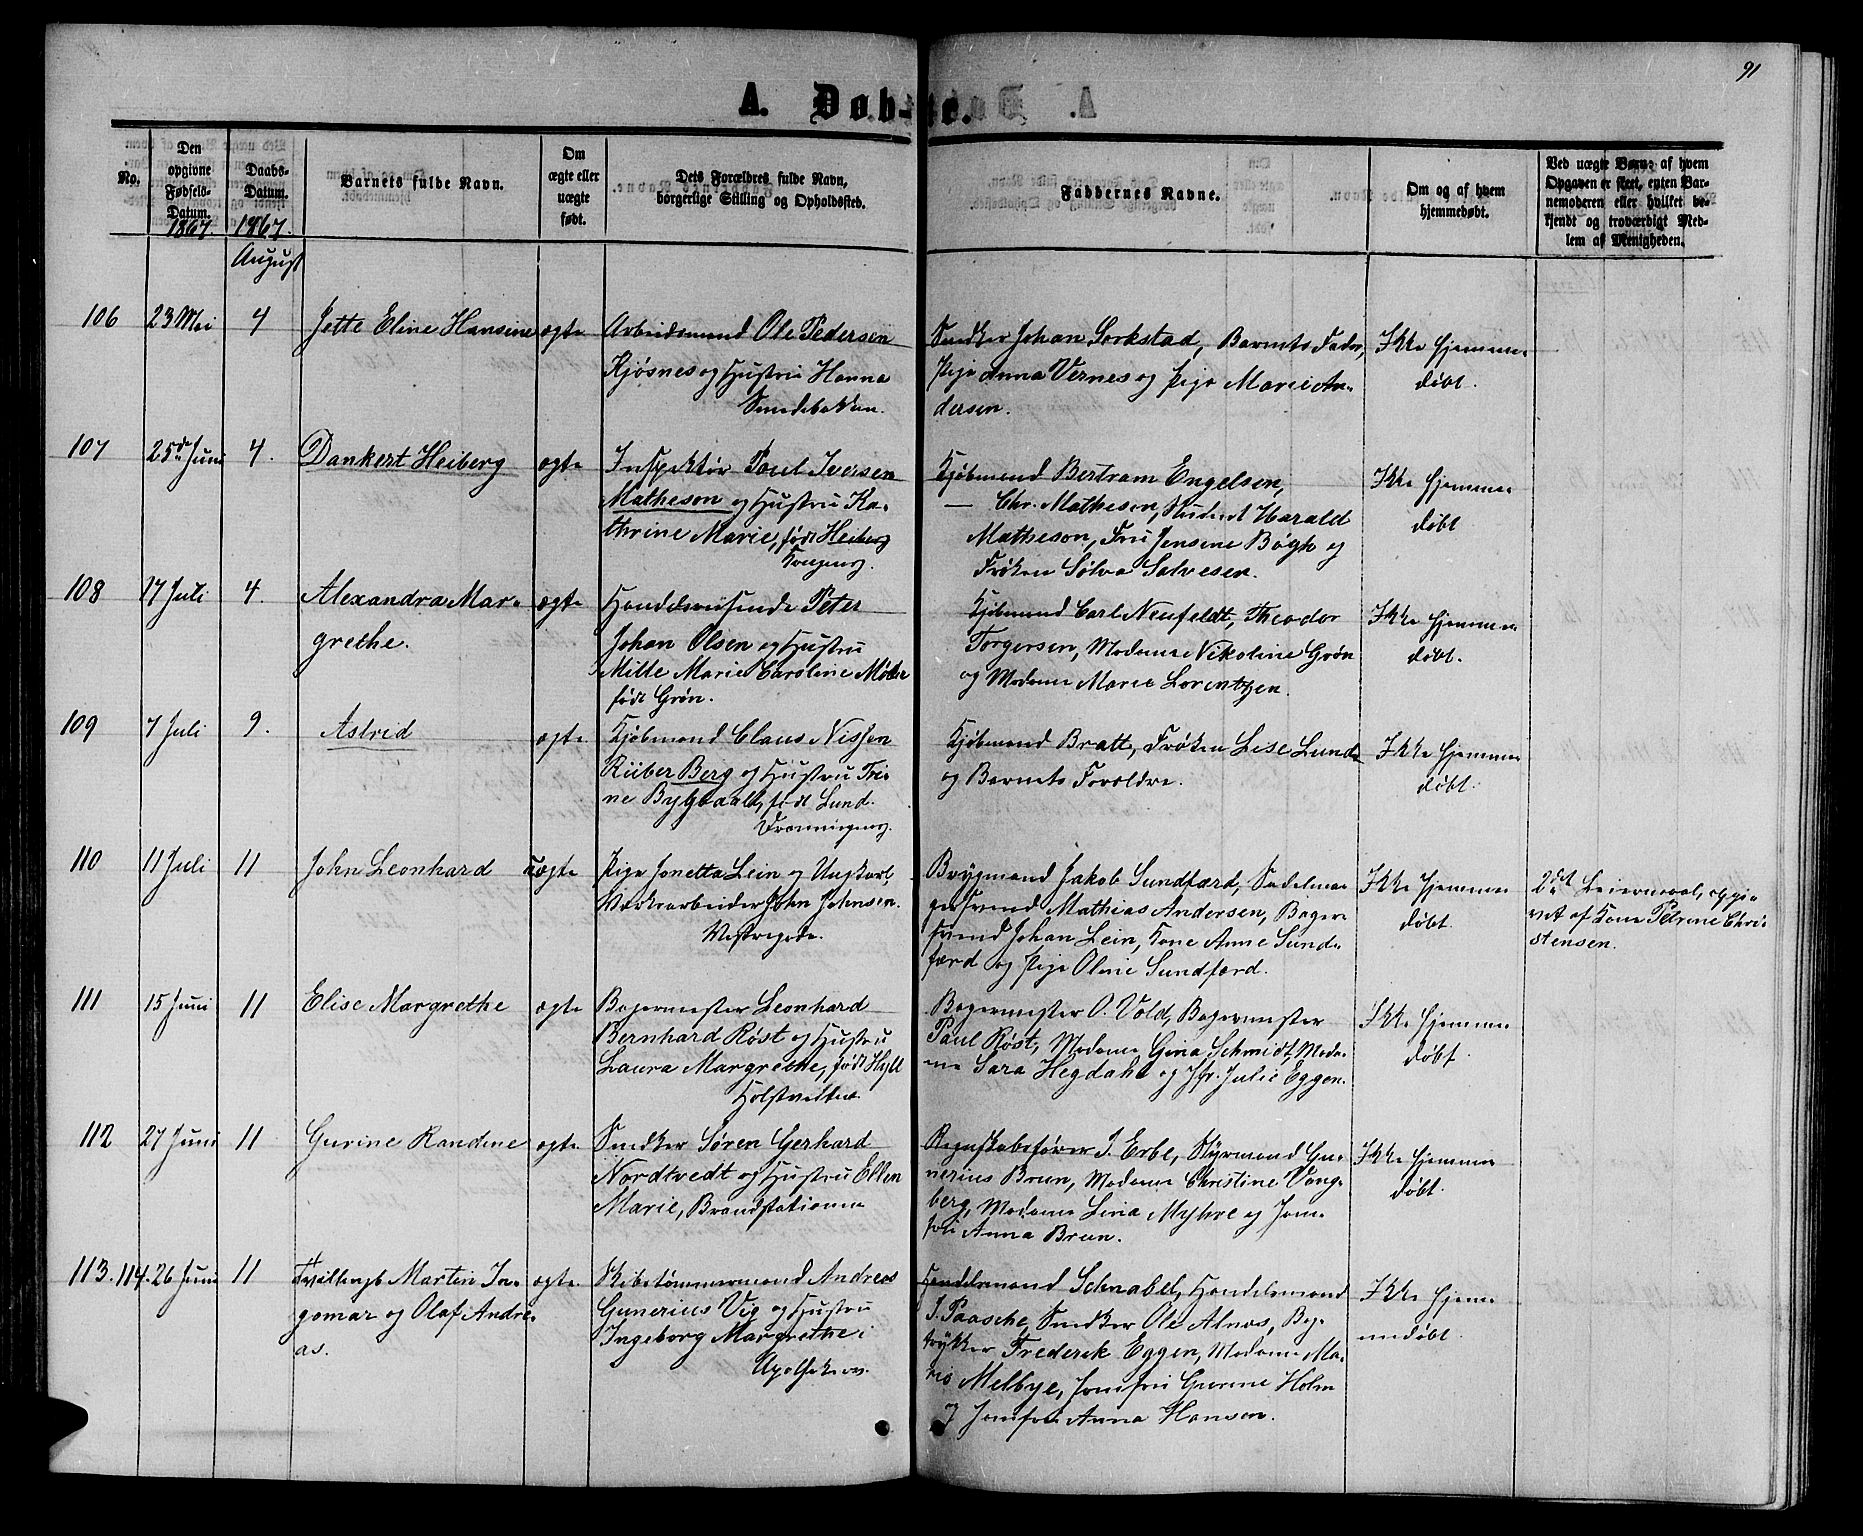 91
A. Døbte.
No.
Den opgivne Fødsels-Datum. 1867.
Daabs-Datum. 1867. August
Barnets fulde Navn.
Om ægte eller uægte født.
Dets Forældres fulde Navn, borgerlige Stilling og Opholdssted.
Faddernes Navne.
Om og af hvem hjemmedøbt.
Ved uægte Børn: af hvem Opgaven er skeet, enten Barnemoderen eller hvilket bekjendt og troværdigt Medlem af Menigheden.
106
23 Mai
4
Jette Eline Hansine
ægte
Arbeidsmand Ole Pedersen
Kjøsnes og Hustru Hanna
Smedebakken.
Snedker Johan Lorkstad, Barnets Fader,
Pige Anna Vernes og Pige Marie An-
dersen.
Ikke hjemme
døbt.
107
25de Juni
4.
Dankert Heiberg
ægte
Inspektør Paul Iversen
Matheson og Hustru Ka-
thrine Marie, født Heiberg
Kongensg.
Kjøbmand Bertram Engelsen,
— Chr. Matheson, Student Harald
Matheson, Fru Jensine Bøgh og
Frøken Sølva Salvesen.
Ikke hjemme
døbt
108
17 Juli
4.
Alexandra Mar-
grethe.
ægte
Handelsreisende Peter
Johan Olsen og Hustru
Mille Marie Caroline Møller
født Grøn.
Kjøbmand Carl Neufeldt, Theodor
Torgersen, Madame Nikoline Grøn
og Madame Marie Lorentzen.
Ikke hjemme
døbt.
109
7 Juli
9.
Astrid
ægte
Kjøbmand Claus Nissen
Riiber Berg og Hustru Tri-
ne Bylgaall, født Lund.
Dronningensg.
Kjøbmand Bratt, Frøken Lise Lund
og Barnets Forældre.
Ikke hjemme
døbt.
110
11 Juli
11
John Leonhard
uægte
Pige Jonetta Lein og Ungkarl,
Værksarbeider John Johnsen.
Vestregade.
Brygmand Jakob Sundfærd, Sadelma-
gersvend Mathias Andersen, Bager-
svend Johan Lein, Kone Anne Sund-
færd og Pige Oline Sundfærd.
Ikke hjemme
døbt.
2det Leiermaal, opgi-
vet af Kone Petrine Chri-
stensen.
111
15 Juni
11
Elise Margrethe
ægte
Bagermester Leonhard
Bernhard Røst og Hustru
Laura Margrethe, født Hyll
Holstveiten
Bagermester O. Vold, Bagermester
Paul Røst, Madame Gina Schmidt, Mada-
me Sara Hegdahl og Jfr. Julie Eggen.
Ikke hjemme
døbt.
112
27 Juni
11
Gurine Randine
ægte
Snedker Søren Gerhard
Nordtvedt og Hustru Ellen
Marie, Brandstationen
Regnskabsfører I. Erbe, Styrmand Gu-
nerius Brun, Madame Christine Vang-
berg, Madame Lina Myhre og Jom-
fru Anna Brun.
Ikke hjemme
døbt.
113. 114.
26 Juni
11
Tvillingb Martin In-
gomar og Olaf Andre-
as.
ægte
Skibstømmermand Andreas
Gunerius Vig og Hustru
Ingeborg Margrethe i
Apothekerv.
Handelsmand Schnabel, Handelsmand
I. Paasche, Snedker Ole Alnæs, Bog-
trykker Frederik Eggen, Madame Ma-
rie Melbye, Jomfru Gurine Holm
og Jomfru Anna Hansen.
Ikke hjem
medøbt.